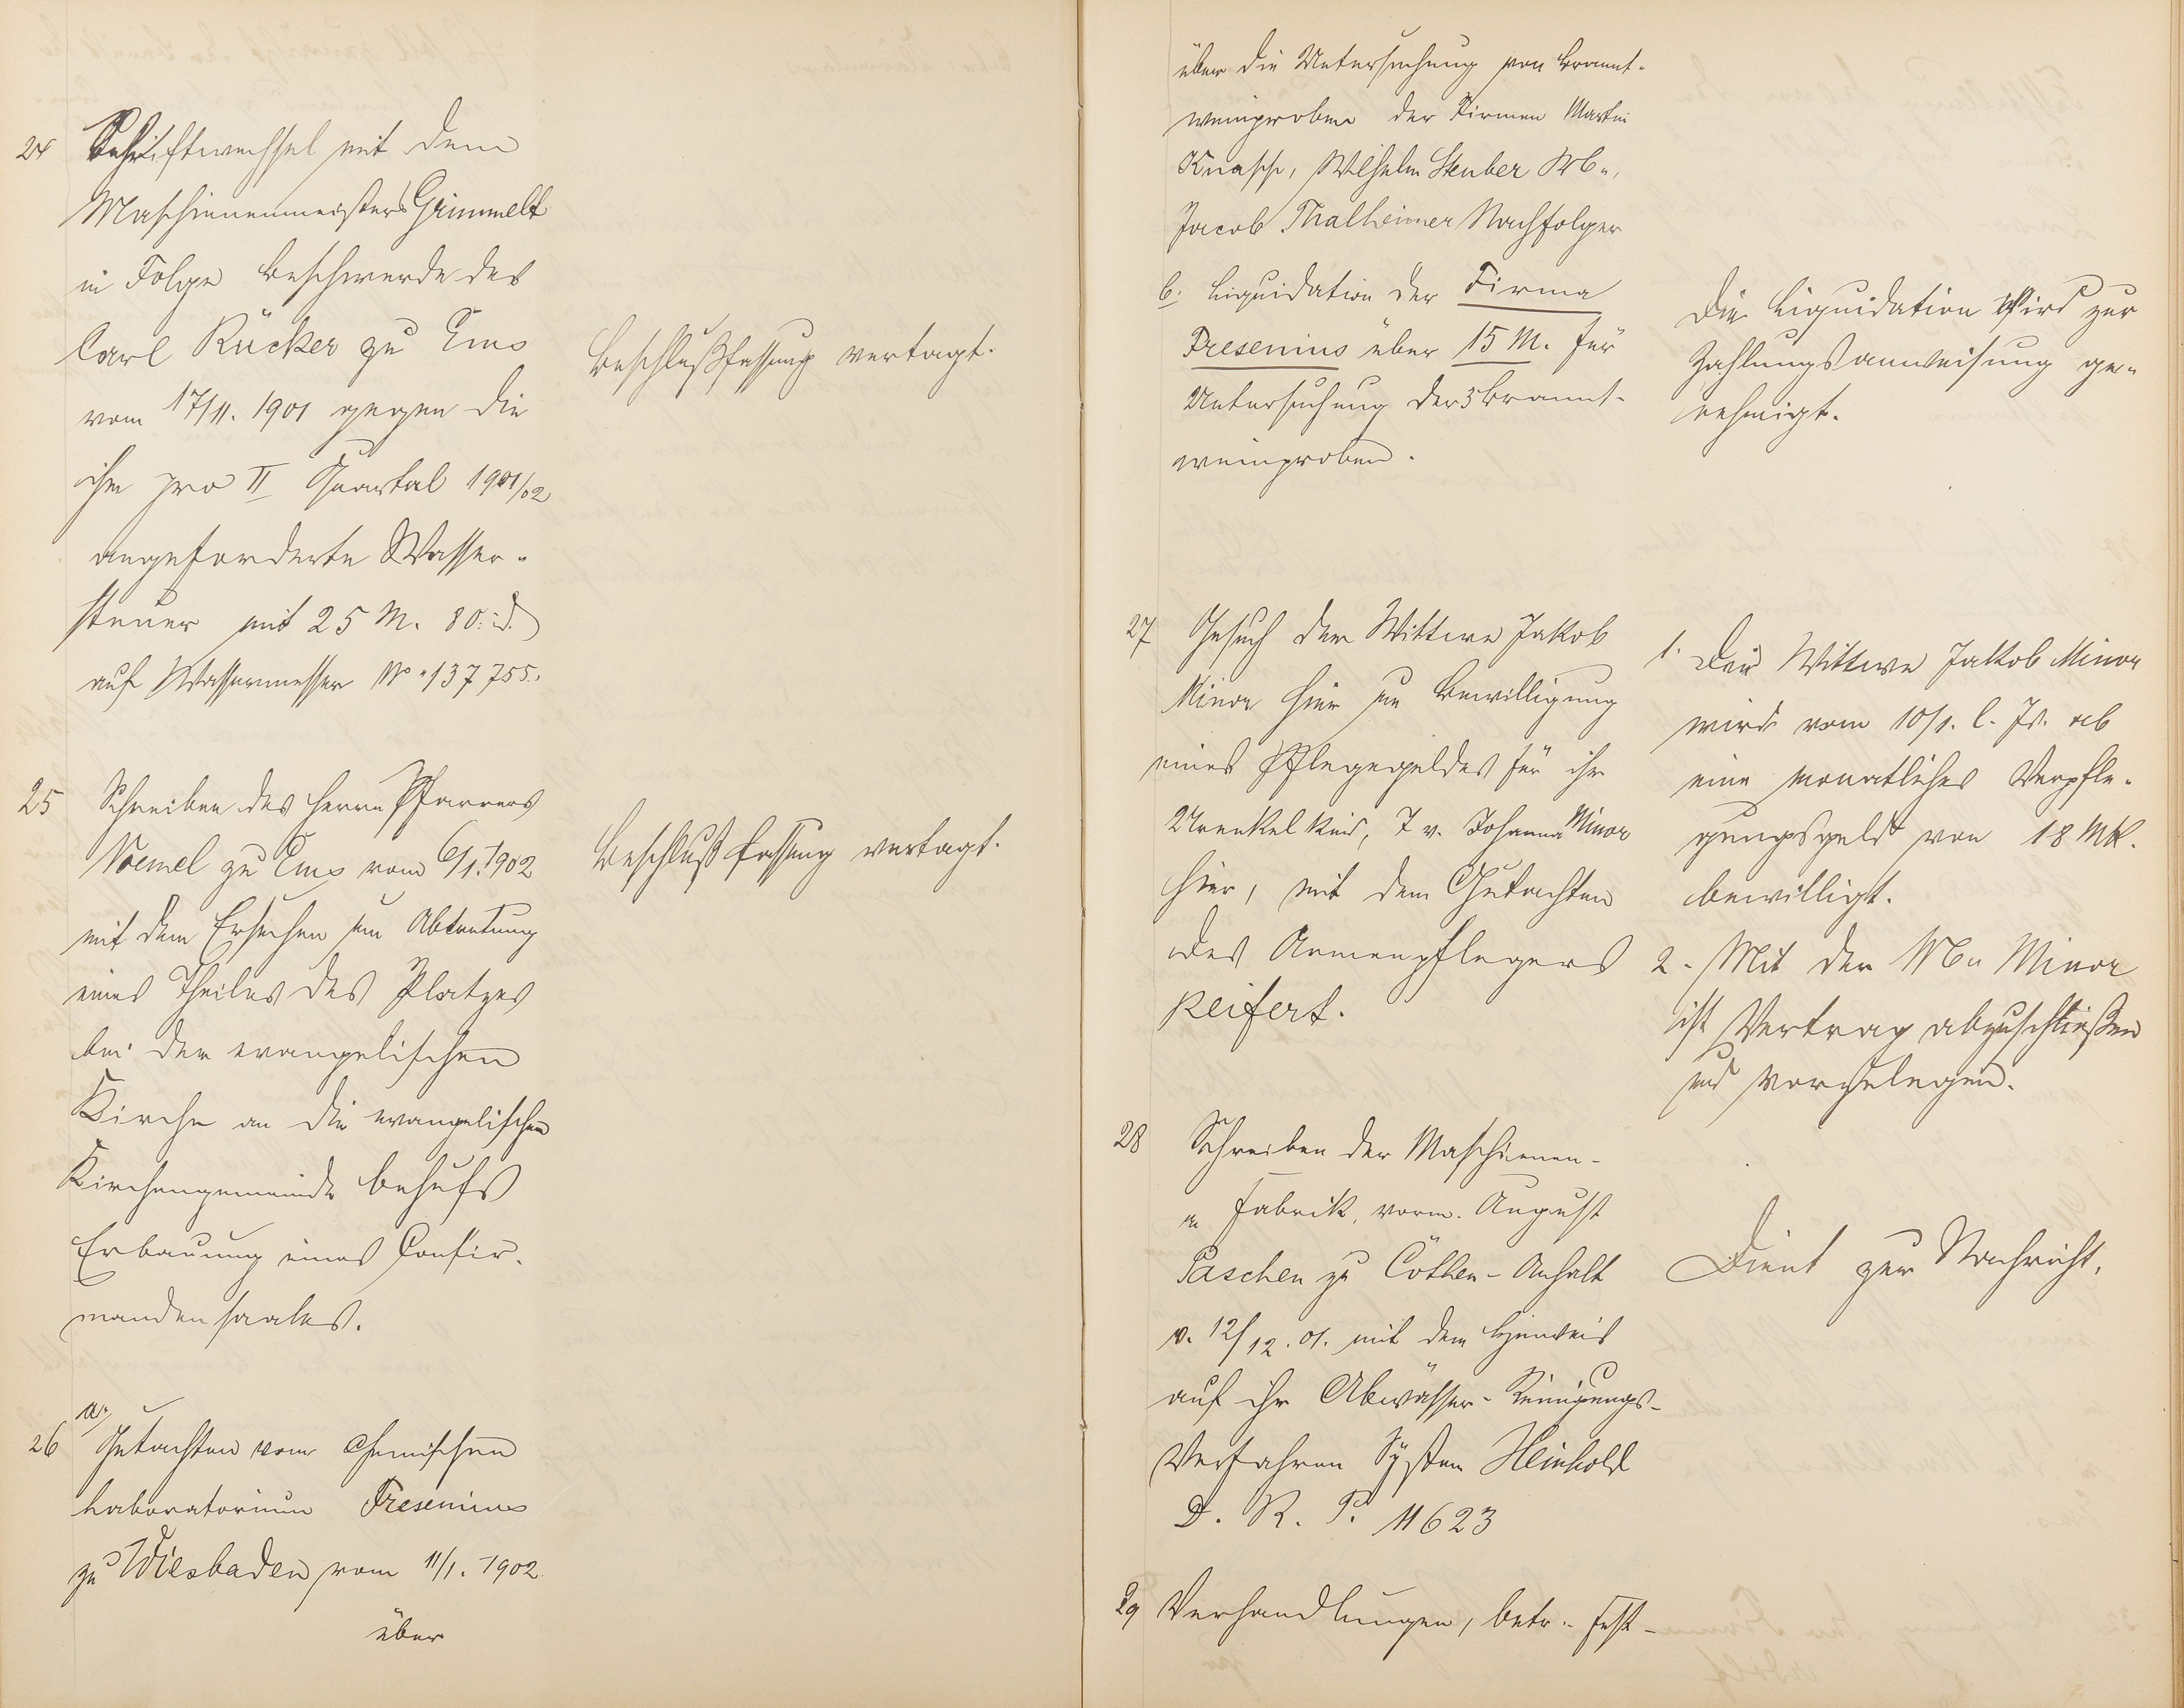 24 Schriftwechsel mit dem
Maschienenmeisters Grimmelt
in Folge Beschwerde des
Carl Rücker zu Ems
vom 17/11. 1901 gegen die
ihm pro II Quartal 1901/02
angeforderte Wasser-
steuer mit 25 M. 80 d.
auf Wassermesser No 137 755.
Beschlußfassung vertagt.
25 Schreiben des Herrn Pfarrers
Noemel zu Ems vom 6/1. 1902
mit dem Ersuchen um Abtretung
eines Theiles des Platzes
bei der evangelischen
Kirche an die evangelischen
Kirchengemeinde behufs
Erbauung eines Confir-
mandensaales.
Beschlußfassung vertagt.
a.
26 Gutachten vom chemischen
Laboratorium Fresenius
zu Wiesbaden vom 11/1. 1902
über
über die Untersuchung von Brannt-
weinproben der Firmen Martin
Knasch, Wilhelm Steuber Wb.,
Jacob Thalheimer Nachfolger
b. Liquidation der Firma
Fresenius über 15 M. für
Untersuchung der 3 Brannt-
weinproben.
Die Liquidation wird zur
Zahlungsanweisung ge-
nehmigt.
27 Gesuch der Wittwe Jakob
Minor hier um Bewilligung
eines Pflegegeldes für ihr
Urenkelkind, T. v. Johanna Minor
hier, mit dem Gutachten
des Armenpflegers
Reifert.
1. Der Wittwe Jakob Minor
wird vom 10/1. l. Js. ab
eine monatliches Verpfle-
gungsgeld von 18 Mk.
bewilligt.
2. Mit der Wb. Minor
ist Vertrag abzuschließen
und vorzulegen.
28 Schreiben der Maschienen-
Fabrik, vorm. August
Paschen zu Cöthen-Anhalt
v. 12/12. 01. mit dem Hinweis
auf ihr Abwässer-Reinigungs-
Verfahren System Heinhold
D. R. P. 11623
Dient zur Nachricht.
29 Verhandlungen, betr. Fest-